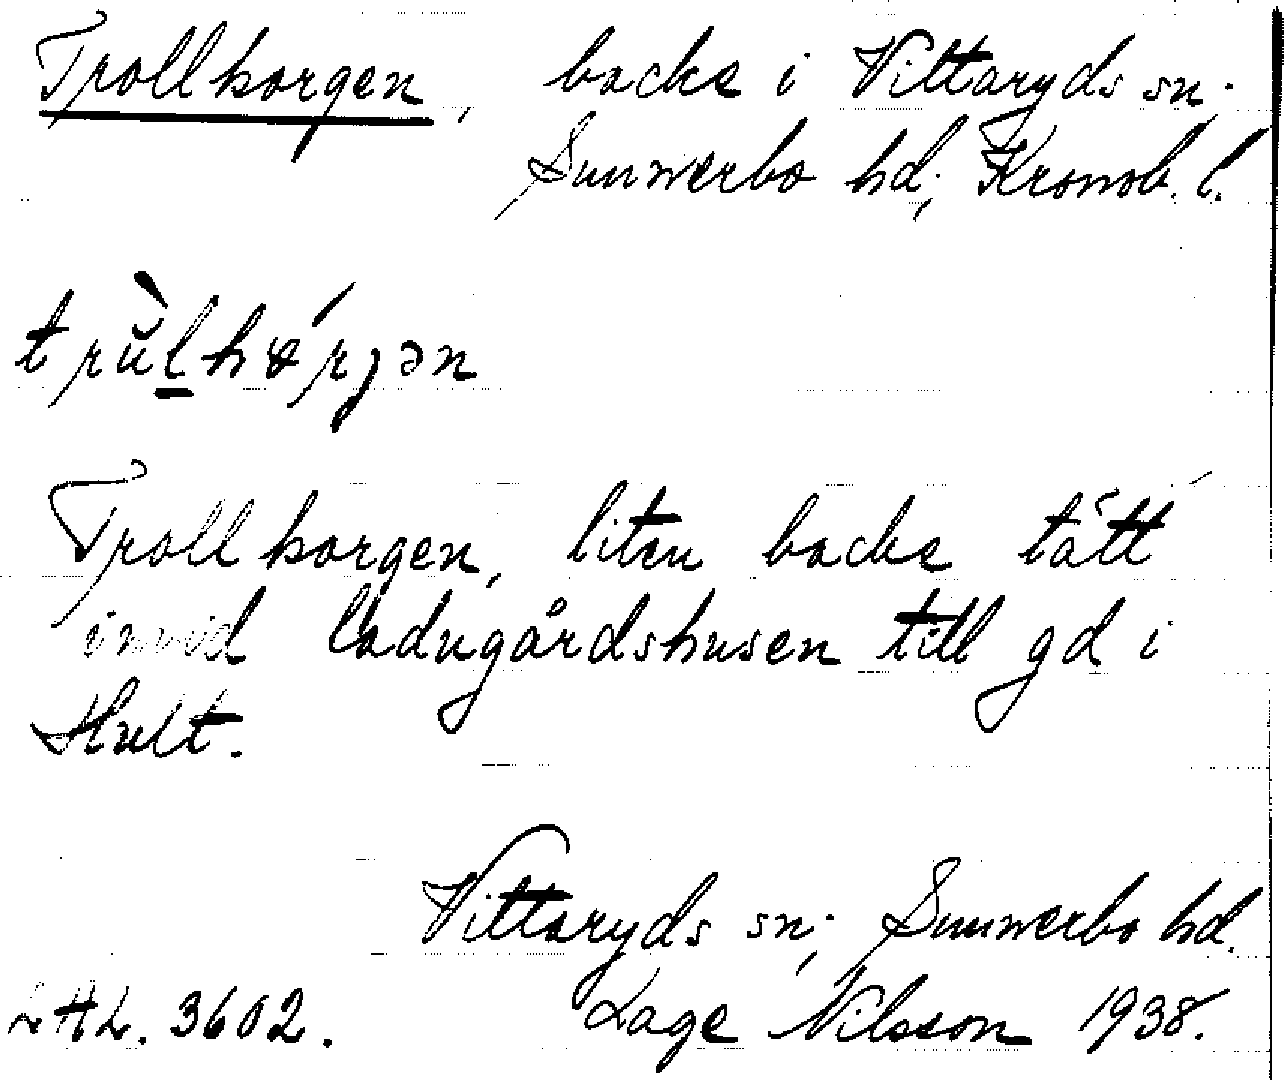 Trollhorgen, backe i Vittaryds sn.
Sunnerbo hd; Kronob. l.
Trollhorgen, liten backe tätt
invid ladugårdshusen till gd i
Hult.
Vittaryds sn; Sunnerbo hd.
LAL. 3602. Lage Nilsson 1938.